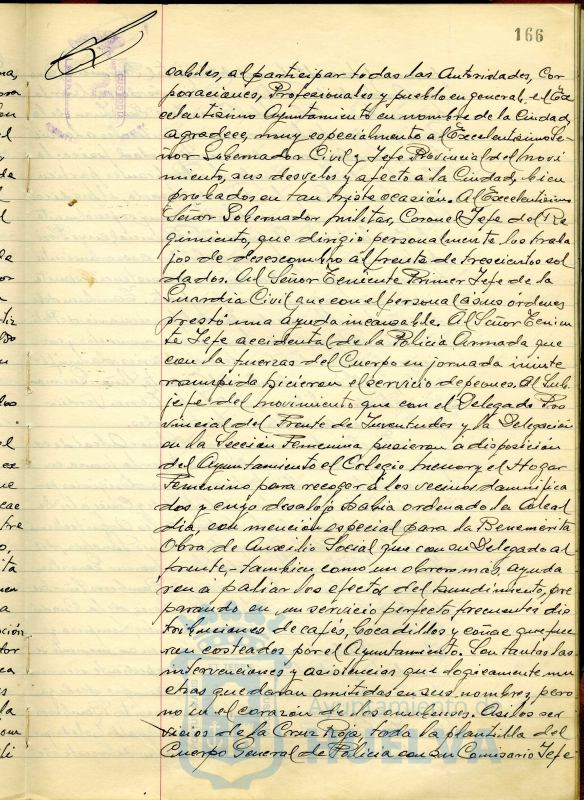 166
sables, al participar todas las Autoridades, Cor
poraciones, Profesionales y pueblo en general, el Ex
celentisimo Ayuntamiento en nombre de la Ciudad,
agradece, muy especialmente al Excelentisimo Se-
ñor Gobernador Civil y Jefe Provincial del Movi
miento, sus desvelos y afecto a la Ciudad, bien
probados en tan triste ocasión. Al Excelentisimo
Señor Gobernador Militar, Coronel Jefe del Re
gimiento, que dirigió personalmente los traba
jos de desescombro al frente de trescientos sol
dados. Al Señor Teniente Primer Jefe de la
Guardia Civil que con el personal a sus ordenes
prestó una ayuda incansable. Al Señor Tenien
te Jefe accidental de la Policia Armada que
con la fuerzas del Cuerpo en jornada ininte
rrumpida hicieron el servicio de peones. Al Sub
jefe del Movimiento que con el Delegado Pro
vincial del Frente de Juventudes y la Delegación
en la Sección Femenina pusieron a disposición
del Ayuntamiento el Colegio Menor y el Hogar
Femenino para recoger a los vecinos damnifica
dos y cuyo desalojo habia ordenado la Alcal
dia, con mención especial para la Benemérita
Obra de Auxilio Social que con su Delegado al
frente, - tambien como un obrero mas, ayuda
ron a paliar los efectos del hundimiento, pre
parando en un servicio perfecto frecuentes dis
tribuciones de cafés, bocadillos y coñac que fue
ron costeados por el Ayuntamiento. Son tantas las
intervenciones y asistencias que logicamente mu
chas quedaran omitidas en sus nombres, pero
no en el corazón de los onubenses. Asi los ser
vicios de la Cruz Roja, toda la plantilla del
Cuerpo General de Policia con su Comisario Jefe
Ayuntamiento de
HUELVA